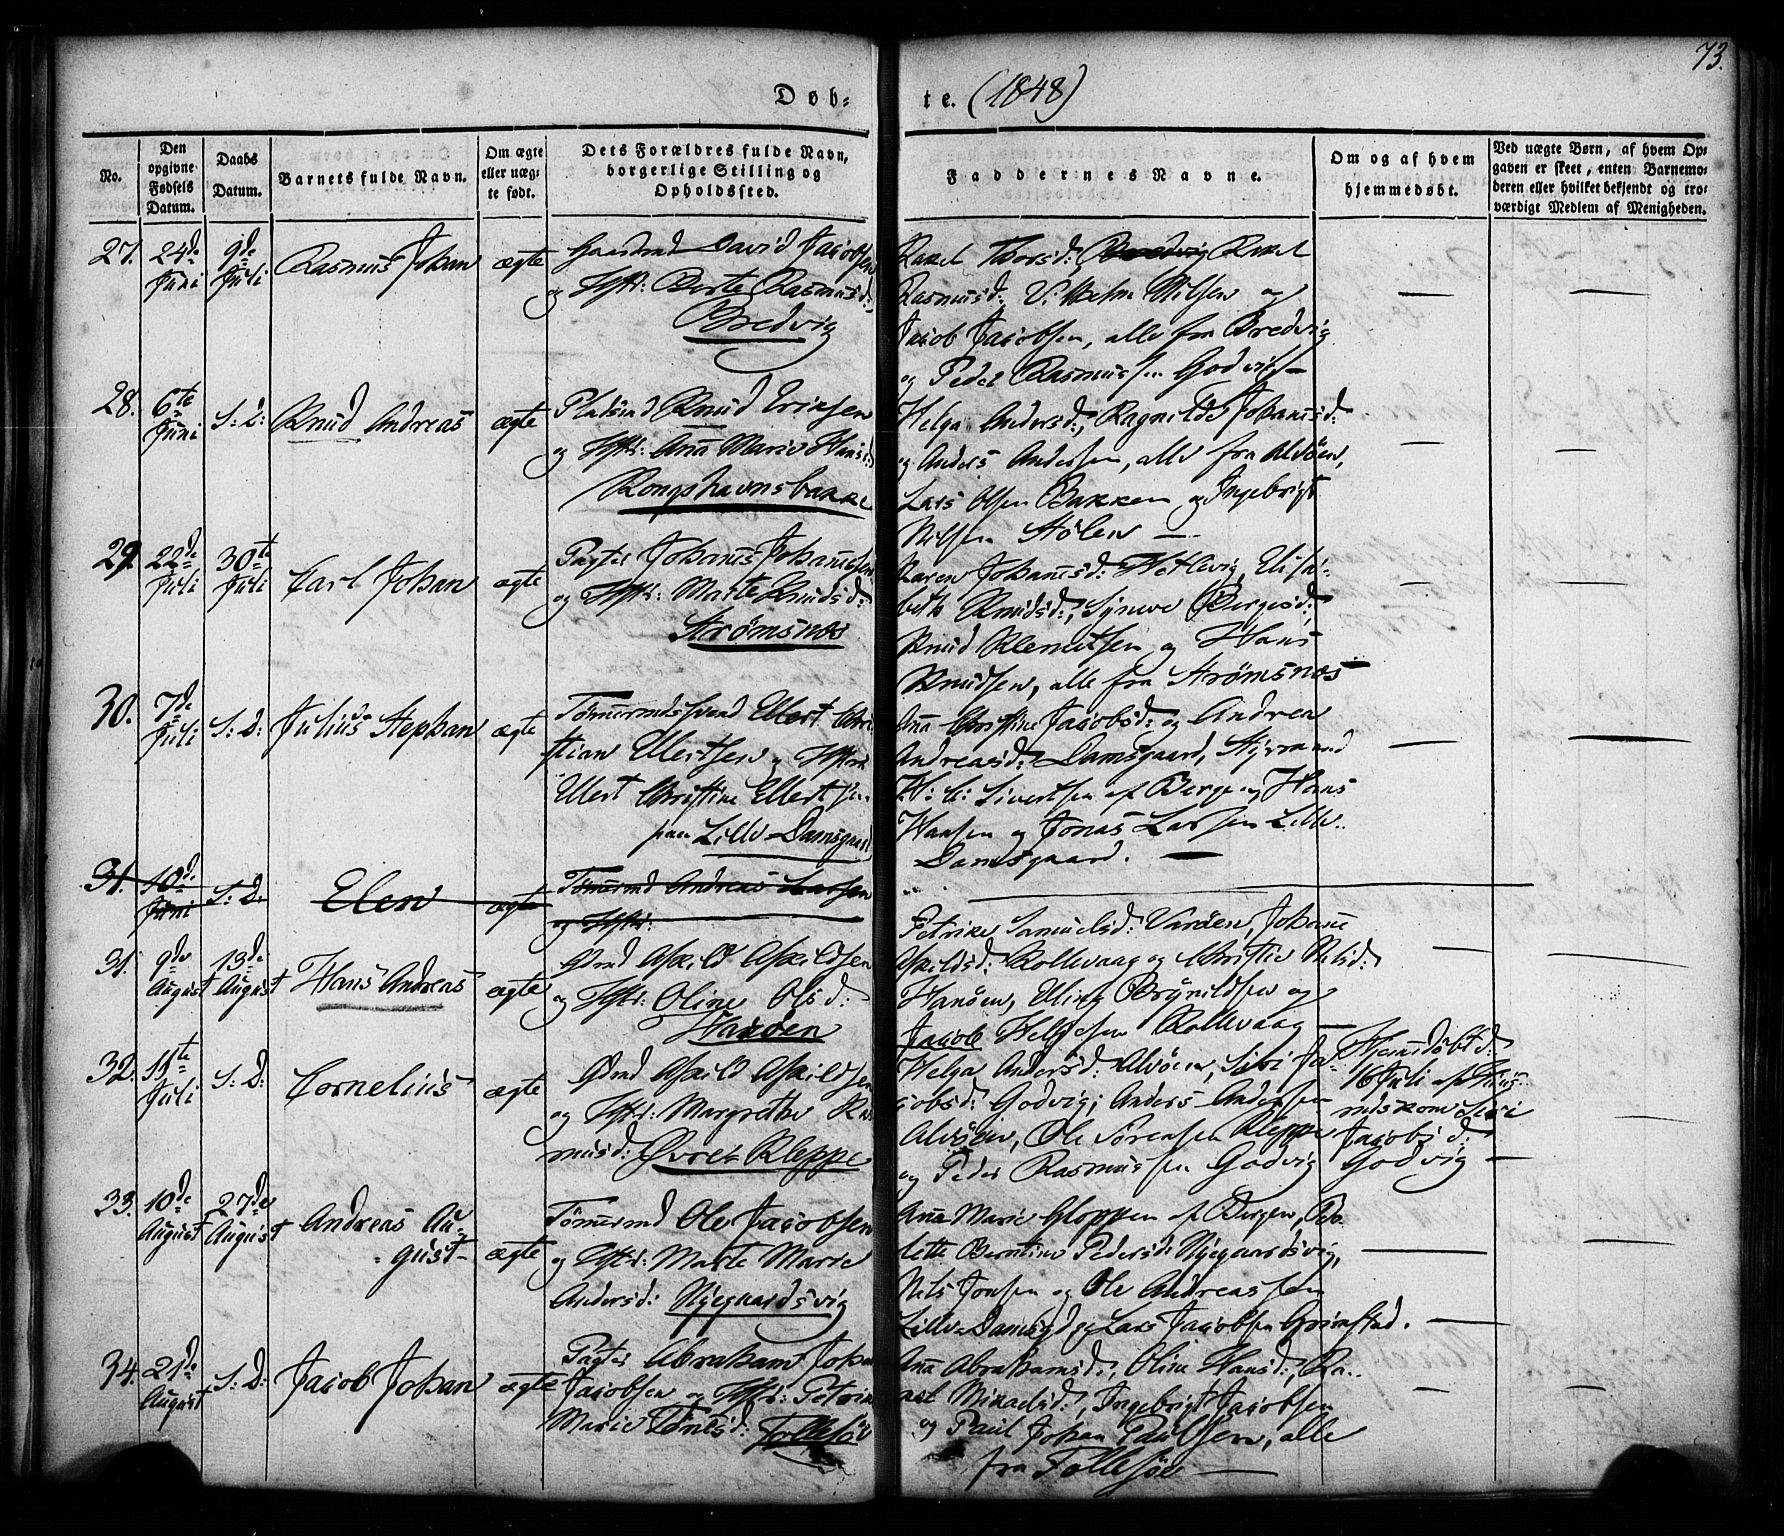 73.
Døb-
te. (1848)
No.
Den opgivne Fødsels Datum.
Daabs Datum.
Barnets fulde Navn.
Om ægte eller uægte født.
Dets Forældres fulde Navn, borgerlige Stilling og Opholdssted.
Faddernes Navne.
Om og af hvem hjemmedøbt.
Ved uægte Børn, af hvem Opgaven er skeet, enten Barnemoderen eller hvilket bekjendt og troværdigt Medlem af Menigheden.
27. 24de Juni
9de Juli
Rasmus Johan
ægte
Gaardmd David Jacobsen
og Hstr: Berte Rasmusd:
Bredvig
Rakel Thorsd: Bredvig Rakel
Rasmusd: Vilhelm Nilsen og
Jacob Jacobsen, alle fra Bredvig
og Peder Rasmussen Godvig —
28. 6te Juni
S: D:
Knud Andreas
ægte
Pladsmd Knud Ericksen
og Hstr: Ana Marie Hansd:
Kongshavnsbakke
Helga Andersd:, Ragnilde Johansd:
og Anders Andersen, alle fra Alvøen,
Lars Olsen Bakken og Ingebrigt
Nilsen Stølen —
29. 22de Juli
30te Juli
Carl Johan
ægte
Pagter Johanes Johanesen
og Hstr: Marte Knudsd:
Strømsnæs
Karen Johansd: Hetlevig, Elisa-
beth Knudsd:, Syneve Bergesd:
Knud Klemetsen og Hans
Knudsen, alle fra Strømsnæs —
30. 7de Juli
S: D:
Julius Stephan
ægte
Tømmermdssvend Ellert Chri-
stian Ellertsen og Hstr:
Ellert Christine Ellertsen
paa Lille-Damsgaard
Ana Christine Jacobsd: og Andrea
Andreasd: Damsgaard, Styrmand
H: C: Sivertsen af Bergen, Hans
Hansen og Jonas Larsen Lille-
Damsgaard. —
31. 10de Juni
S: D:
Elen
ægte
Tømmermd Andreas Larsen
og Hstr:
31. 9de August
13de August
Hans Andreas
ægte
Gdmd Askild Askildsen
og Hstr: Oline Olsd:
Hanøen
Petrike Samuelsd: Vardøen, Johane
Askildsd: Rollevaag og Christie Nilsd:
Hanøen, Elling Brynildsen og
Jacob Helgesen Rollevaag —
32. 11te Juli
S: D:
Cornelius
ægte
Gdmd Askild Askildsen
og Hstr: Margrethe Ras-
musd: Øvre-Kleppe
Helga Andersd: Alvøen, Siri Ja-
cobsd: Godvig; Anders Andersen
Alvøen, Ole Sørensen Kleppe
og Peder Rasmussen Godvig
Hjemdøbt d:
16 Juli af Huus-
mdskone Siri
Jacobsd:
Godvig —
33. 10de August
27de August
Andreas Au-
gust
ægte
Tømmermd Ole Jacobsen
og Hstr: Marte Marie
Andersd: Nygaardsvig
Ana Marie Gloppen af Bergen, Bo-
lette Berntine Pedersd: Nygaardsvig,
Nils Jonsen og Ole Andreassen
Lille-Damsgd og Lars Jacobsen Grimstad. —
34. 21de August
S: D:
Jacob Johan
ægte
Pagter Abraham Johan
Jacobsen og Hstr: Petrine
Marie Tønesd: Follesøe
Ana Abrahamsd:, Oline Hansd:, Ra-
kel Mikaelsd:, Ingebrigt Jacobsen
og Paul Johan Paulsen, alle
fra Follesøe —